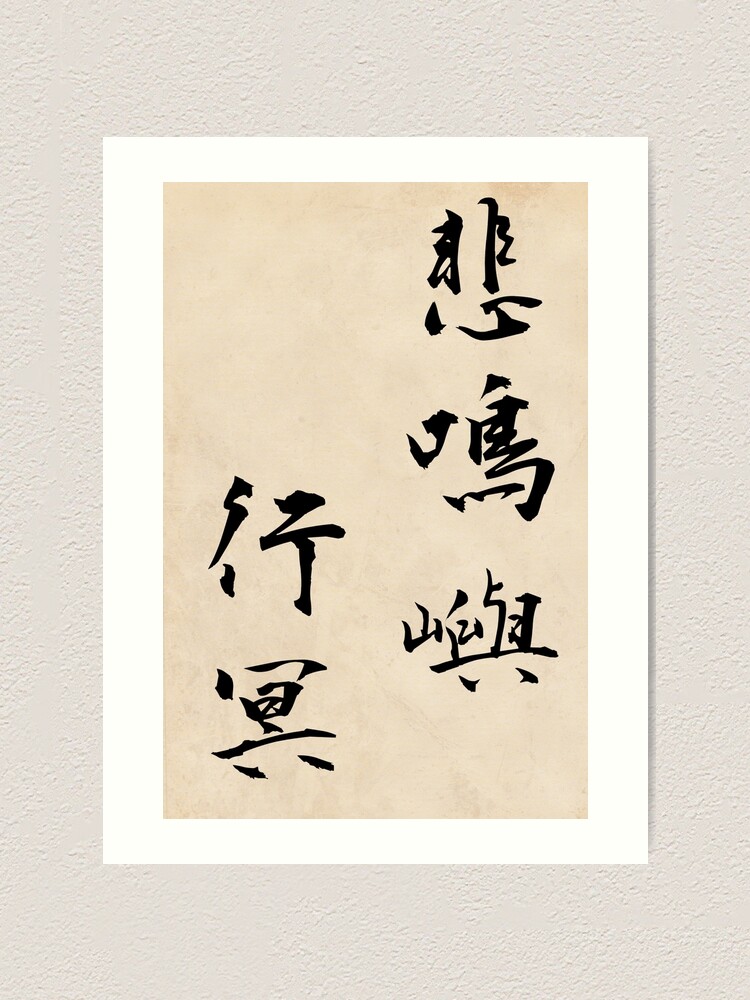 悲鳴嶼
行冥